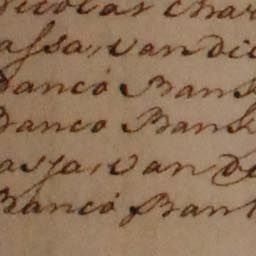 Nicolas Char
assa, van die
Banco Bank
Banco Bank
assa, van de
Banco Bank